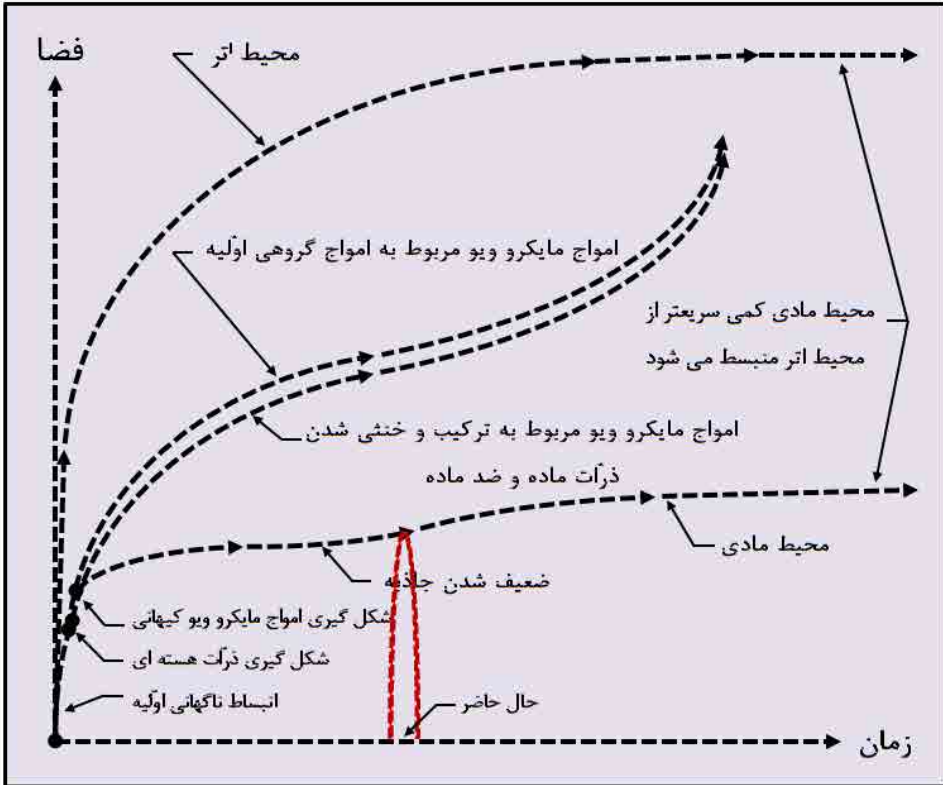 فضا
محیط اتر
امواج مایکرو ویو مربوط به امواج گروهی اوّلیه
محیط مادی کمی سریعتر از
محیط اتر منبسط می شود
امواج مایکرو ویو مربوط به ترکیب و خنثی شدن
ذرّات ماده و ضد ماده
محیط مادی
ضعیف شدن جاذبه
شکل گیری امواج مایکرو ویو کیهانی
شکل گیری ذرّات هسته ای
انبساط ناگهانی اوّلیه
حال حاضر
زمان